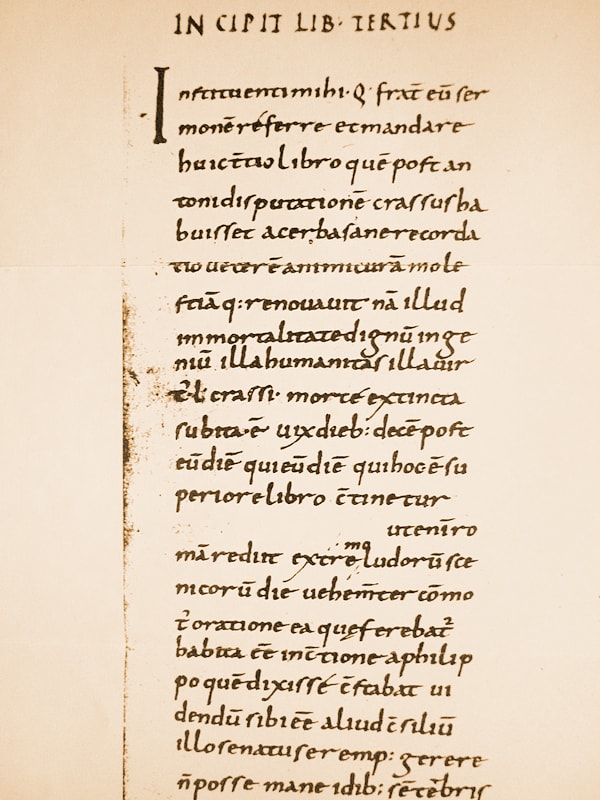 INCIPIT LIB· TERTIUS
Instituenti mihi· Q· frat̄ eū ser
monē referre et mandare
huic t̄tio libro quē post an
toni disputationē crassus ha
buisset acerba sane recorda
tio veterē animi curā mole
stiāq: renovavit nā illud
immortalitate dignū inge
niū illa humanitas illa vir
t̄· l· crassi· morte extincta
subita· ē· vix dieb: decē post
eū diē qui eū diē qui hoc ē su
periore libro c̄tinetur
ut en̄ ro
mā rediit extremo ludorū sce
nicorū die vehem̄ter cōmo
t̄ oratione ea quę ferebat̄
habita eē in c̄tione a philip
po quē dixissē c̄stabat vi
dendū sibi eē aliud c̄siliū
illo senatu se remp: gerere
n̄ posse mane idib: sētēbris